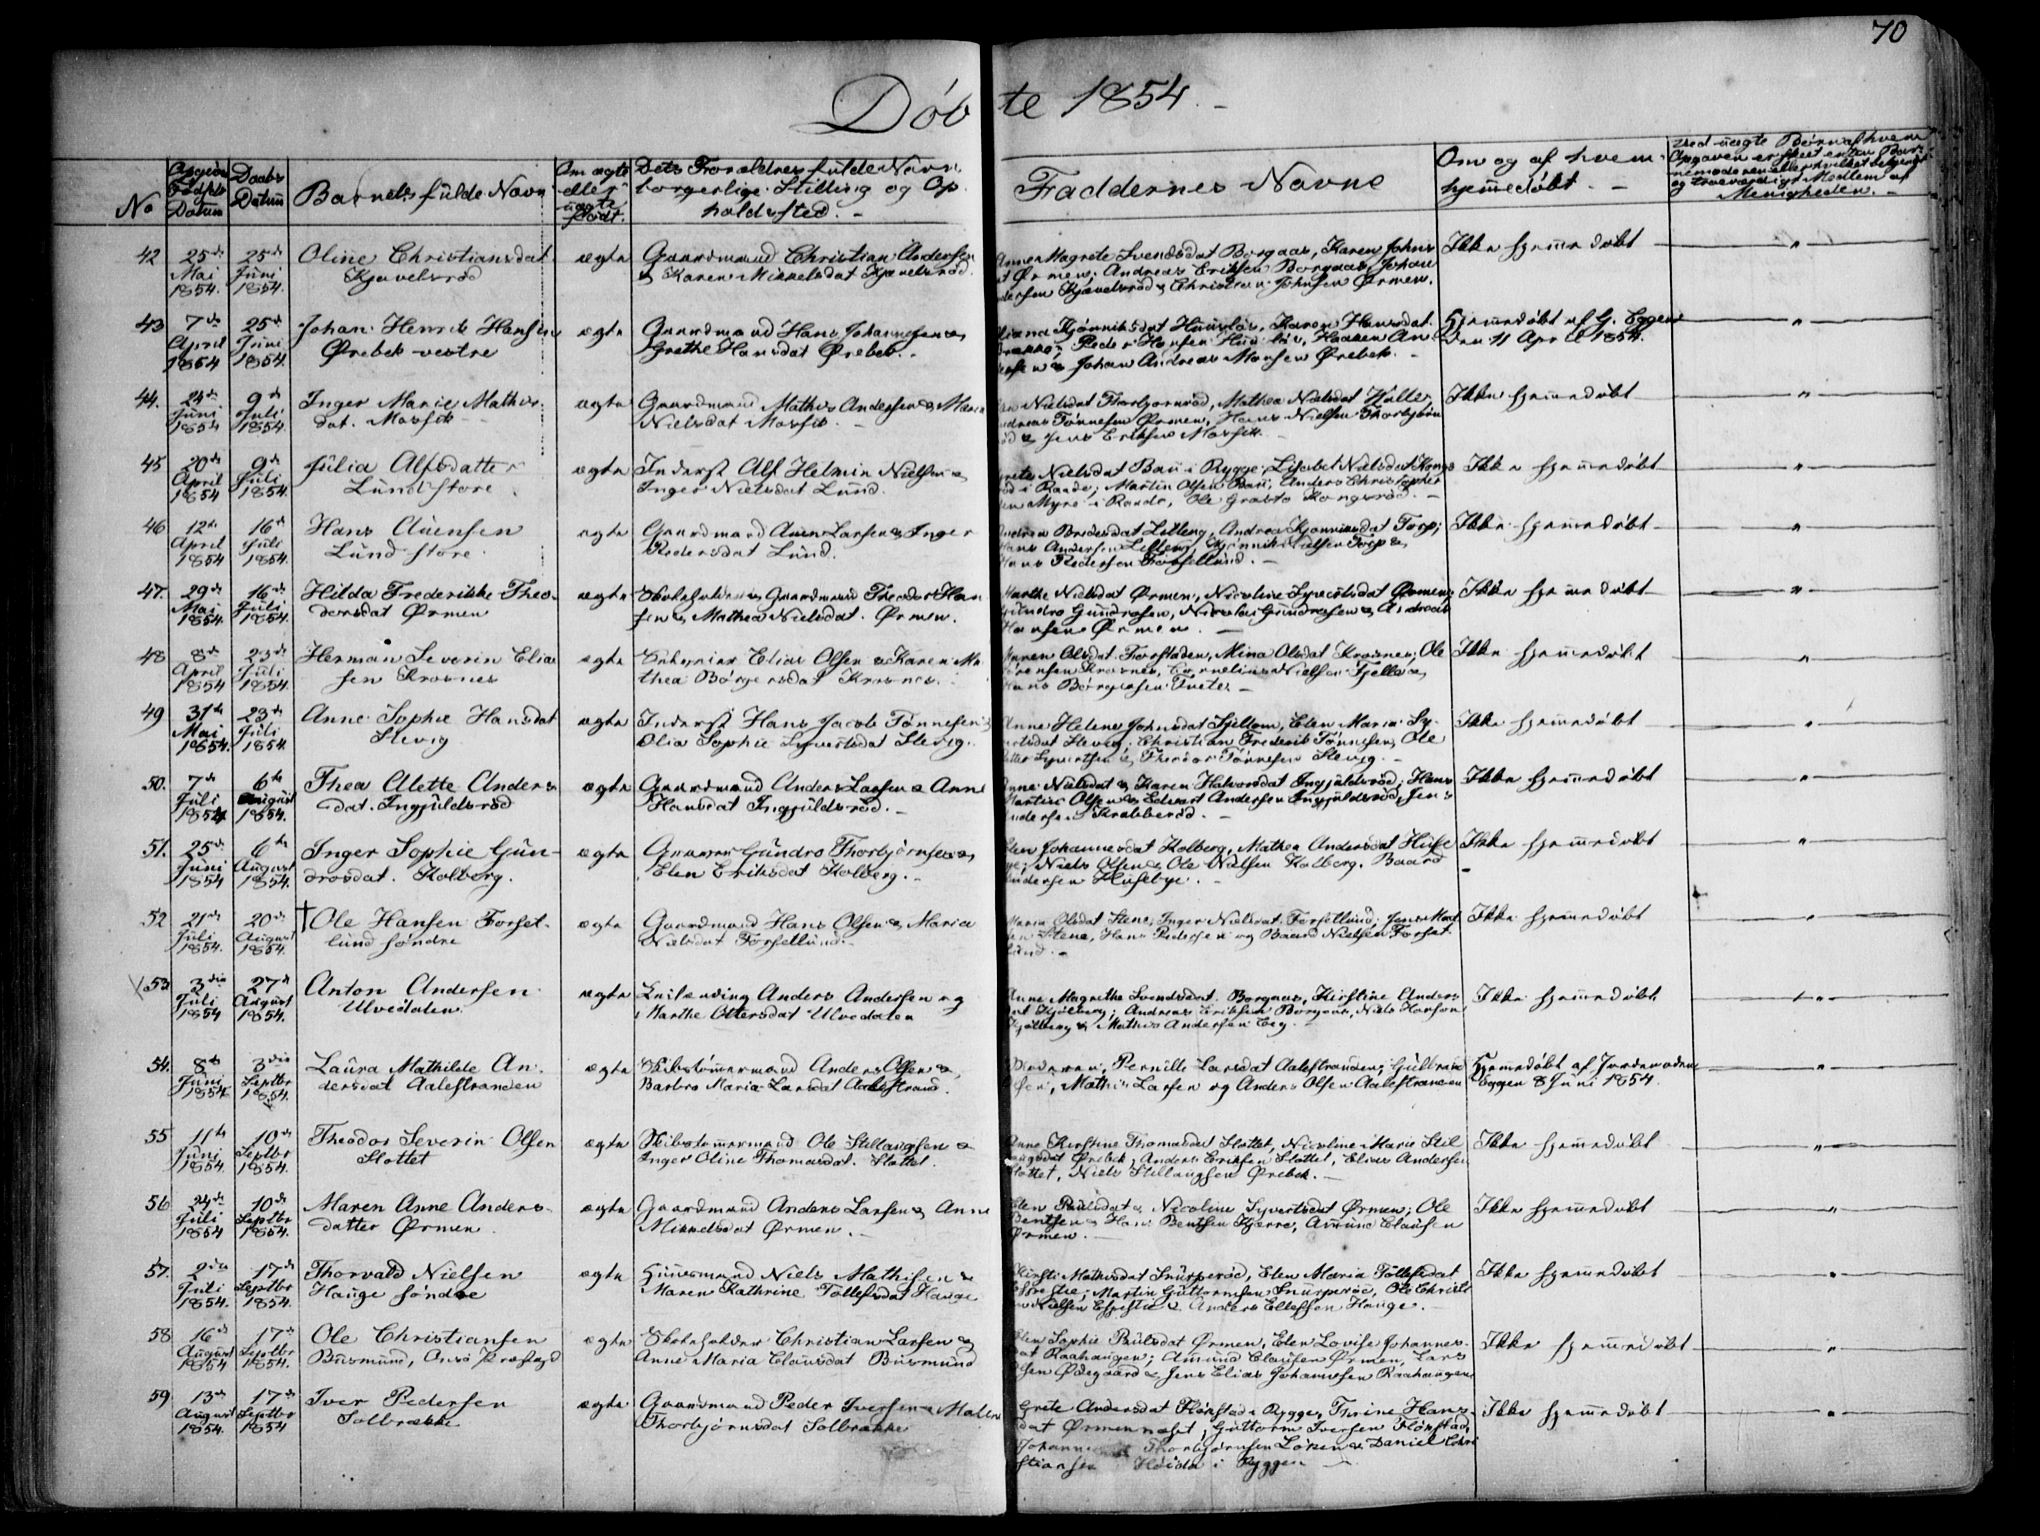 70
Döbte 1854.
No
Datum
Daabs
Datum
Barnets fulde Navn
Om ægte
eller
uægte
født.
Dets Forældres fulde Navn
borgerlige Stilling og Op
holdssted.
Faddernes Navne
Om og af hvem
hjemedöbt.
Ved uægte Børn af hvem
Opgaven er skeet enten Bar-
nemoderen eller
og troværdige Medlem af
Menigheden.
42
25de
Mai
1854.
25de
Juni
1854.
Oline Christiansdat
Kjævelsröd
ægte
Gaardmand Christian Andersen
& Karen Mikkelsdat Kjævelsröd.
Anne Magrete Svendsdat Borgaas, Karen Johns
Örmen; Andreas Eriksen Borgaas, Johan
Kjævelsröd & Christian Johnsen Örmen.
Ikke hjemedöbt
"
43
7de
April
1854
25de
Juni
1854.
Johan Henrik Hansen
Örebek vestre
ægte
Gaardmand Hans Johannesen &
Grethe Hansdat Örebek.
Kjönniksdat Huuslös, Karen Hansdat
Peder Hansen Huuslös, Haagen An
& Johan Andreas Monsen Örebek.
Hjemedöbt af G. Eggen
den 11 April 1854.
"
44.
24de
Juni
1854
9de
Juli
1854.
Inger Marie Mathis
dat. Mosfik
ægte
Gaardmand Mathis Andersen & Maren
Nielsdat Mosfik.
Nielsdat Thorbjørnröd, Mathea Nielsdat
Tønnesen Örmen, Hans Nielsen Thorbjørn
& Jens Eriksen Mosfik.
Ikke hjemedöbt
"
45
20de
April
1854
9de
Juli
1854.
Julia Alfsdatter
Lund store
ægte
Inderst Alf Helmin Nielsen &
Inger Nielsdat Lund.
Nielsdat Bau i Rygge, Lisabet Nielsdat Kongs
röd i Raade; Martin Olsen Bau, Anders Christopher
Myre i Raade, Ole Kongsröd.
Ikke hjemedöbt
"
46
12te
April
1854
16de
Juli
1854.
Hans Auensen
Lund store
ægte
Gaardmand Auen Larsen & Inger
Pedersdat Lund.
Lilleng, Andrea Kjønniksdat Torp;
Hans Andersen Lilleng, Kjønnik Nielsen Torp &
Hans Pedersen Forsetlund.
Ikke hjemedöbt
"
47.
29de
Mai
1854.
16de
Juli
1854.
Hilda Frederikke Theo-
dorsdat Örmen
ægte
Gaardmand Theodor Han
sen & Mathea Nielsdat. Örmen.
Marthe Nielsdat Örmen, Nicoline Syvertsdat Örmen;
Gundro Gundrosen, Nicolai Gundrosen & Andreas
Hansen Örmen.
Ikke hjemedöbt
"
48
8de
April
1854
23de
Juli
1854.
Herman Severin Elia
sen Krosnes
ægte
Elias Olsen & Karen Ma
thea Börgersdat Krosnes.
Maren Olsdat Torsløden, Mina Olsdat Krosnes, Ole
Sörensen Krosnes, Cornelius Nielsen Fjelle &
Hans Börgersen Tveter.
Ikke hjemedöbt
"
49
31te
Mai
1854.
23de
Juli
1854.
Anne Sophie Hansdat
Slevig
ægte
Inderst Hans Jacob Tønnesen &
Olia Sophie Syvertsdat Slevig.
Anne Helene Johnsdat Fjellom, Elen Maria Sy-
vertsdat Slevig, Christian Frederik Tønnesen, Ole
Peter Syvertsen & Theodor Tønnesen Slevig.
Ikke hjemedöbt
"
50.
7de
Juli
1854
6te
August
1854.
Thea Alette Anders
dat. Ingjuldsröd
ægte
Gaardmand Anders Larsen & Anne
Hansdat Ingjuldsröd.
Anne Nielsdat & Karen Halvorsdat Ingjuldsröd; Hans
Martin Olsen & Edvart Andersen Ingjuldsröd, Jens
Andersen Skrabberöd.
Ikke hjemedöbt
"
51.
25de
Juni
1854
6te
August
1854.
Inger Sophie Gun-
drosdat. Kolberg.
ægte
Gundro Thorbjørnsen &
Elen Eriksdat Kolberg.
Elen Johannesdat Kolberg, Mathea Andersdat Huse
bye; Niels Olsen & Ole Nielsen Kolberg. Baard
Andersen Husebye.
Ikke hjemedöbt
"
52
21de
Juli
1854.
20de
August
1854.
† Ole Hansen Forset-
lund søndre
ægte
Gaardmand Hans Olsen & Maria
Nielsdat Forsetlund.
Maria Olsdat Stene, Inger Nielsdat Forsetlund; Jens
Stene, Hans Pedersen og Baard Nielsen Forset
lund.
Ikke hjemedöbt
"
53
3die
Juli
1854
27de
August
1854.
Anton Andersen
Ulvedalen
ægte
Anders Andersen og
Marthe Ottersdat Ulvedalen
Anne Magrethe Svendsdat. Borgaas, Kirstine Anders
dat Kjölberg; Andreas Eriksen Borgaas, Niels Hansen
Kjölberg & Mathis Andersen Eeg.
Ikke hjemedöbt
"
54.
8de
Juni
1854
3die
Septbr
1854.
Laura Mathilde An-
dersdat Aalestranden
ægte
Skibstömmermand Anders Olsen &
Barbro Maria Larsdat Aalestrand.
Moderen, Pernille Larsdat Aalestranden; Gulbran
Mathis Larsen og Anders Olsen Aalestranden
Hjemedöbt af Jordemoderen
Eggen 8 Juni 1854.
55
11te
Juni
1854.
10de
Septbr
1854.
Theodor Severin Olsen
Slottet
ægte
Skibstömmermand Ole Stillaugsen &
Inger Oline Thomasdat. Slottet.
Anne Kirstine Thomasdat Slottet, Nicoline Marie Stil
laugsdat Örebek, Anders Eriksen Slottet, Elias Andersen
Slottet, Niels Stillaugsen Örebek.
Ikke hjemedöbt
"
56
24de
Juli
1854
10de
Septbr
1854.
Maren Anne Anders-
datter Örmen
ægte
Gaardmand Anders Larsen & Anne
Mikkelsdat Örmen.
Elen Paulsdat & Nicoline Syvertsdat Örmen; Ole
Bentsen & Hans Bentsen Kjerre, Amund Clausen
Örmen.
Ikke hjemedöbt
"
57.
2den
Juli
1854.
17de
Septbr
1854.
Thorvald Nielsen
Hauge söndre
ægte
Huusmand Niels Mathisen &
Maren Kathrine Tollefsdat Hauge
Kirsti Mathisdat Snurperöd, Elen Maria Tollefsdat
Martin Guttormsen Snurperöd, Ole Christi
Nielsen & Anders Ellefsen Hauge.
Ikke hjemedöbt
"
58
16de
August
1854
17de
Septbr
1854.
Ole Christiansen
Busmund, Onsö Præstegd
ægte
Christian Larsen &
Anne Maria Clausdat Busmund
Elen Sophie Paulsdat Örmen, Elen Lovise Johannes-
dat Raahaugen; Amund Clausen Örmen, Lars
Ödegaard & Jens Elias Johannesen Raahaugen
Ikke hjemedöbt
"
59
13de
August
1854.
17de
Septbr
1854
Iver Pedersen
Solbrække
ægte
Gaardmand Peder Iversen & Malene
Thorbjørnsdat Solbrække
Grete Andersdat Flöxstad i Rygge, Thrine Hans-
dat Örmennæset, Guttorm Iversen Flöxstad,
Thorbjørnsen Löken & Daniel Chri
stiansen i Ryggen
Ikke hjemedöbt
"